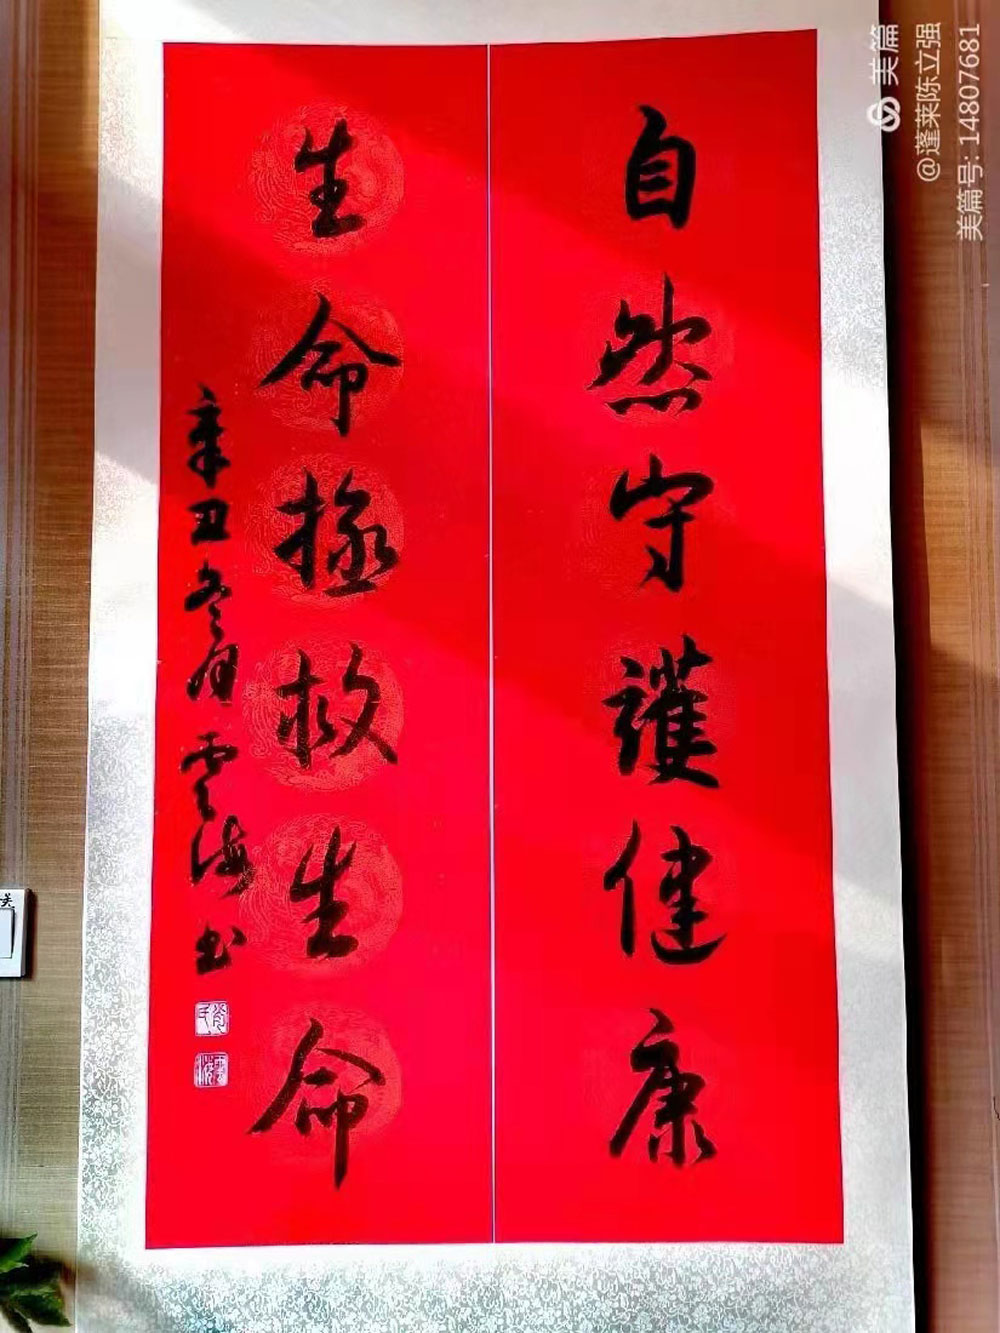 自然守護健康
生命拯救生命
辛丑冬月雲海书
美篇
@蓬莱陈立强
美篇号: 14807681
关